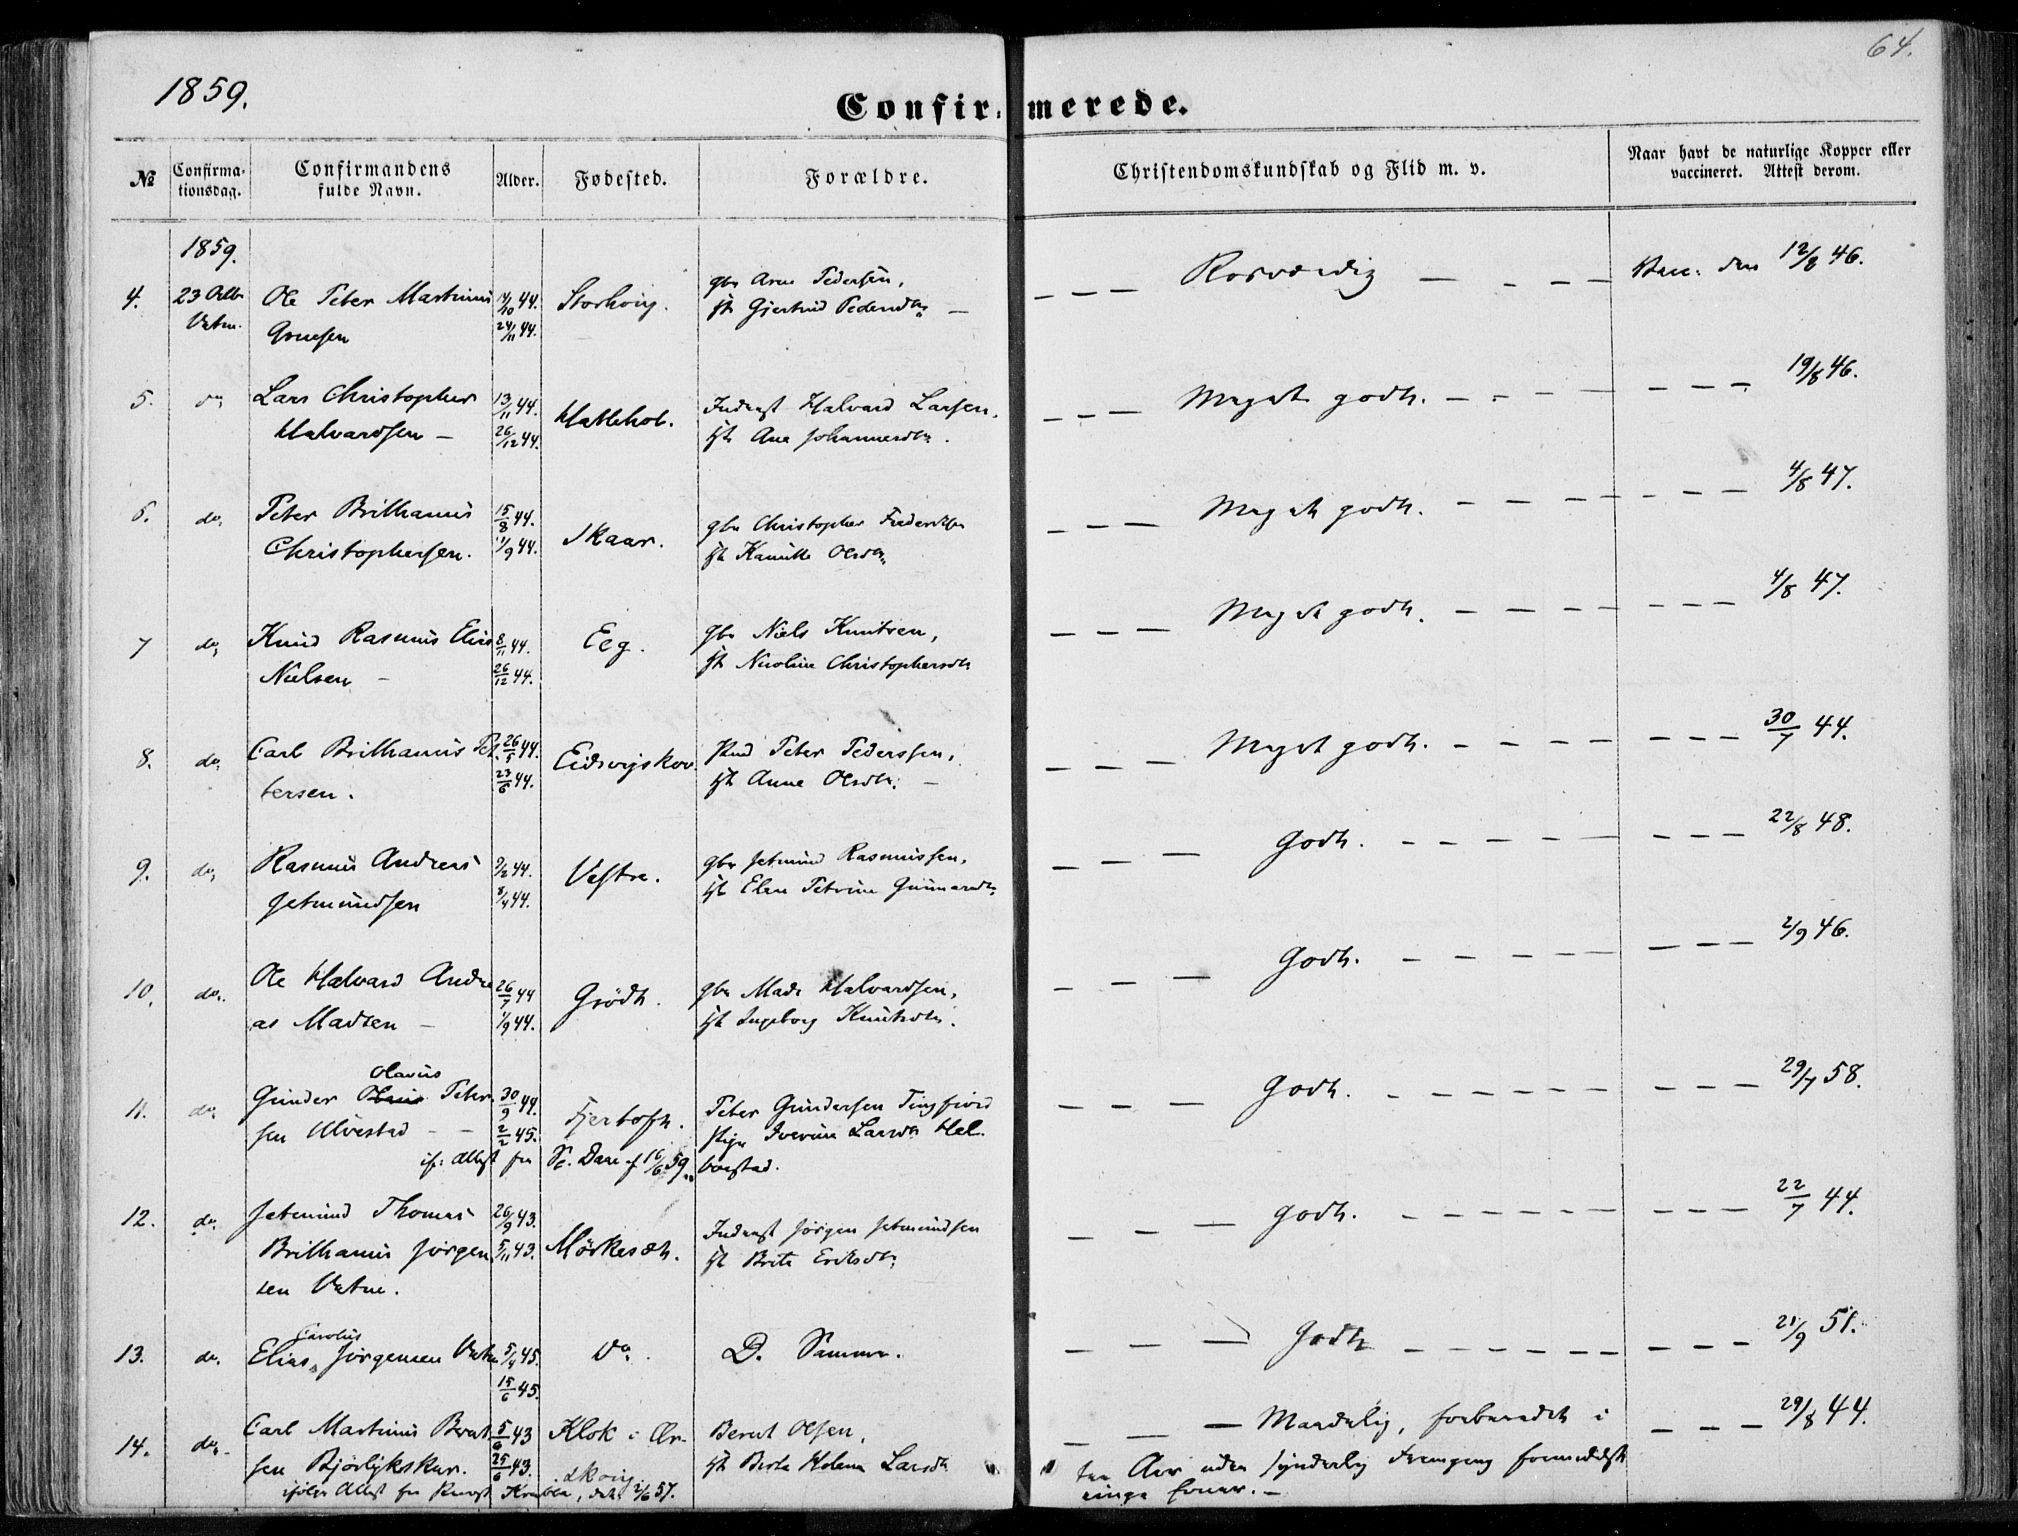 1859.
64.
Confir- merede.
№
Confirma-
tionsdag.
Confirmandens
fulde Navn.
Alder.
Fødested.
Forældre.
Christendomskundskab og Flid m. v.
Naar havt de naturlige Kopper eller
vaccineret. Attest derom.
1859.
4. 23 Octbr Ole Peter Martinus 14/10 44. Storhoug. gbr Arne Pedersen, Rosværdig Vacc. den 12/8 46.
Vatne. Arnesen 24/11 44. H. Gjertrud Pedersdtr
5. do Lars Christopher 13/11 44. Hatlehol. Inderst Halvard Larsen, Meget godt. 19/8 46.
Halvardsen 26/12 44. H. Ane Johannesdtr.
6. do Peter Brilhanus 15/8 44. Skaar. gbr Christopher Frederiksen Meget godt. 4/8 47.
Christophersen. 1/9 44. H. Olsdtr
7 do Knud Rasmus Elias 8/11 44. Eeg. gbr Niels Knutsen, Meget godt. 4/8 47.
Nielsen 26/12 44. H. Nicoline Christophersdtr
8. do Carl Brilhanus Pet- 26/5 44. Eidsvigskov. Peter Pederssen, Meget godt. 30/7 44.
tersen. 23/6 44. H. Anne Olsdtr.
9. do Rasmus Andreas 9/2 44. Vestre. gbr Jetmund Rasmussen, Godt. 22/8 48.
Jetmundsen 8/4 44. H. Elen Petrine Gunnarsdtr
10. do. Ole Halvard Andre 26/7 44 Grödt. gbr Mads Halvardsen, Godt. 2/9 46.
as Madsen 1/9 44. H. Ingeborg Knutsdtr.
Olavus
11. do Gunder Peter- 30/9 44. Fjertoft. Peter Gundersen Tingfjord Godt. 29/7 58.
sen Ulvestad 2/2 45. Pige Iverine Larsdtr Hel-
if: Attest fra Pr. Dare af 16/6 59. bostad.
12. do Jetmund Thomas 26/9 43. Mörkeset. Inderst Jörgen Jetmundsen godt. 22/7 44.
Brilhanus Jörgen 5/11 43. H. Brite Eriksdtr
sen Vatne.
Carolus
13. do. Elias Jörgensen Vatne 5/4 45. Do. D. Samme. Godt 21/9 51.
15/6 45.
14. do Carl Martinus Bernt- 5/6 43 Klok i Ør- Bernt Olsen, Maadelig, forberedet i 29/8 44.
sen Bjørlykskar. 25/6 43. skoug. H. Berte Helene Larsdtr Aar uden synderlig Fremgang formedelst
ifølge Attest fra Provst Krabbe, dat. 2/6 57. ringe Evner.